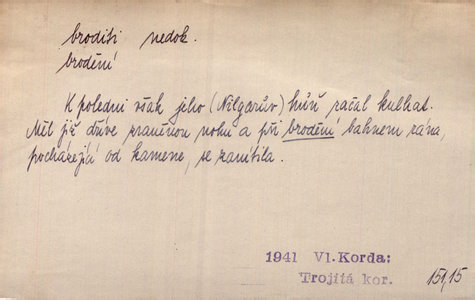 broditi nedok.
brodění
K poledni však jeho (Nilgarův) kůň začal kulhat.
Měl již dříve zraněnou nohu a při brodění bahnem rána,
pocházející od kamene, se zanítila.
1941 Vl.Korda:
Trojitá kor.
151,15